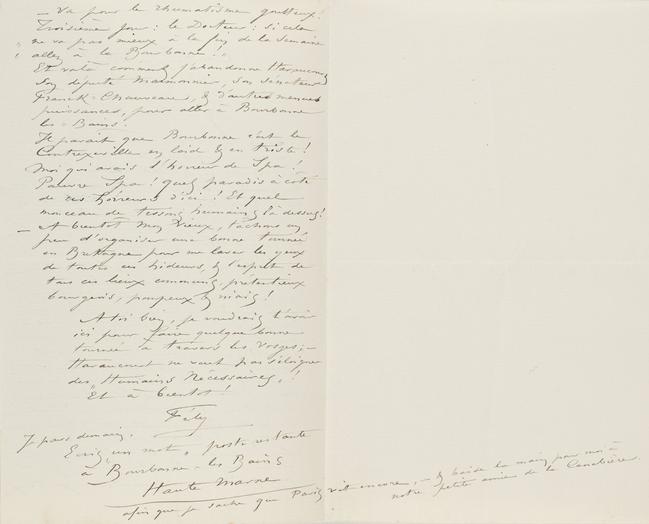 – Va pour le rhumatisme goutteux!
Troisième jour: le Docteur: si cela
ne va pas mieux à la fin de la semaine
allez à la Bourbonne!..
Et voilà comment j'abandonne Haraucourt
Son député Marmonnier, son sénateur
Franck-Chauveau, & d'autres menues
puissances, pour aller à Bourbonne
les-Bains!
Il paraît que Bourbonne c'est le
Contrexéville en laid & en triste!
Moi qui avais l'horreur de Spa!
Pauvre Spa! quel paradis à côté
de ces horreurs d'ici! Et quel
monceau de tessons humains là dessus!
– A bientôt mon Vieux, tâchons un
peu d'organiser une bonne tournée
en Bretagne pour me laver les yeux
de toutes ces hideurs, & l'esprit de
tous ces lieux communs, prétentieux
bourgeois, pompeux & niais!
A toi bien, je voudrais t'avoir
ici pour faire quelque bonne
tournée à travers les Vosges; –
Haraucourt ne veut pas s'éloigner
des "Humains Nécessaires"!
Et à bientôt!
Fély
Je pars demain.
Ecris un mot, poste restante
à Bourbonne-les Bains
Haute Marne
afin que je sache que Paris vit encore, – & baise la main pour moi à
notre petite amie de la Canebière.